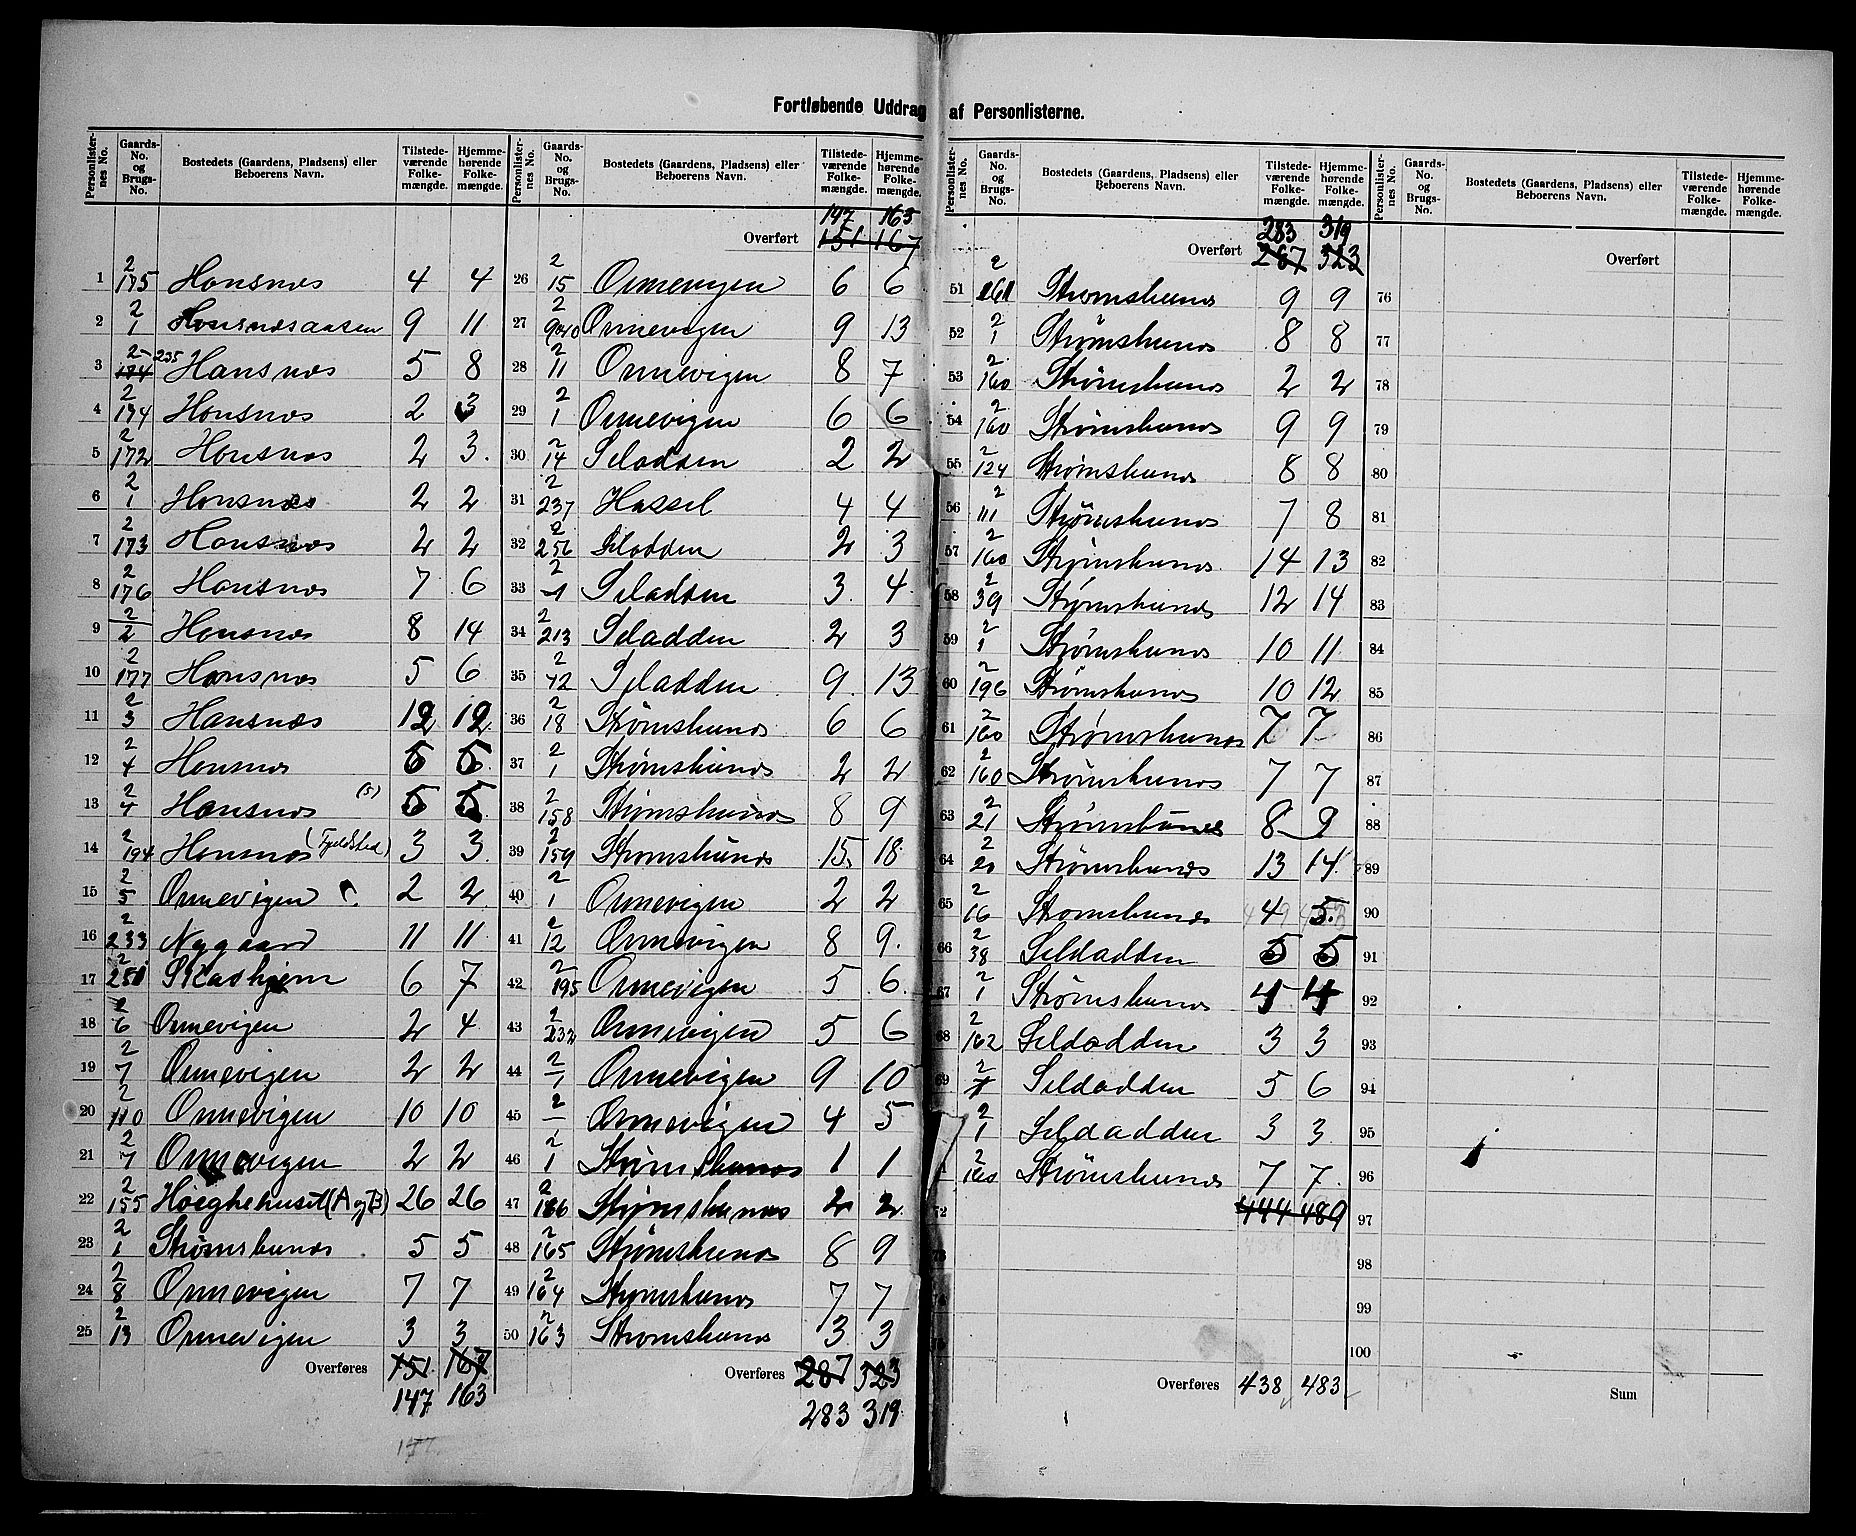 Fortløbende Uddrag af Personlisterne.
Personlister-nes No. Gaards-No. og Brugs-No. Bostedets (Gaardens, Pladsens) eller Beboerens Navn. Tilstede-værende Folke-mængde. Hjemme-hørende Folke-mængde.
1 2/175 Hansnæs 4 4
2 2/1 Hansnæsaasen 9 11
3 2/174 235 Hansnæs 5 8
4 2/174 Hansnæs 2 3
5 2/172 Hansnæs 2 3.
6 2/1 Hansnæs 2 2
7 2/173 Hansnæs 2 2
8 2/176 Hansnæs 7 6
9 2/2 Hansnæs 8 14
10 2/177 Hansnæs 5 6
11 2/3 Hansnæs 12 12
12 2/4 Hansnæs 5 5
13 2/4 Hansnæs (5) 5 5
14 2/194 Hansnæs (Fjeldstad) 3 3.
15 2/5 Ormevigen 2 2
16 2/233 Nygaard 11 11
17 2/251 Skadhjem 6 7
18 2/6 Ormevigen 2 4
19 2/7 Ormevigen 2 2
20 2/110 Ormevigen 10 10
21 2/7 Ormevigen 2 2
22 2/155 Høeghehuset (A og B) 26 26
23 2/1 Strømsbunæs 5 5
24 2/8 Ormevigen 7 7
25 2/13 Ormevigen 3 3
Overføres 151 167
147 163
Personlister-nes No. Gaards-No. og Brugs-No. Bostedets (Gaardens, Pladsens) eller Beboerens Navn. Tilstede-værende Folke-mængde. Hjemme-hørende Folke-mængde.
147 163
Overført 151 167
26 2/15 Ormevigen 6 6
27 2/9 Ormevigen 9 13
28 2/11 Ormevigen 8 7
29 2/1 Ormevigen 6 6
30 2/14 Seladden 2 2
31 2/237 Hassel 4 4
32 2/256 Sladden 2 3
33 2/1 Seladden 3 4.
34 2/213 Seladden 2 3
35 2/42 Seladden 9. 13
36 2/18 Strømsbunæs 6 6
37 2/1 Strømsbunæs 2 2
38 2/158 Strømsbunæs 8 9
39 2/159 Strømsbunæs 15. 18
40 2/1 Ormevigen 2 2
41 2/12 Ormevigen 8 9.
42 2/195 Ormevigen 5 6.
43 2/232 Ormevigen 5 6
44 2/1 Ormevigen 9 10
45 2 Ormevigen 4 5
46 2/1 Strømsbunæs 1 1
47 2/166 Strømsbunæs 2 2
48 2/165 Strømsbunæs 8 9
49 2/164 Strømsbunæs 7 7
50 2/163 Strømsbunæs 3 3
Overføres 287 323
283 319
Personlister-nes No. Gaards-No. og Brugs-No. Bostedets (Gaardens, Pladsens) eller Beboerens Navn. Tilstede-værende Folke-mængde. Hjemme-hørende Folke-mængde.
283 319
Overført 287 323
51 2/161 Strømsbunæs 9 9
52 2/1 Strømsbunæs 8 8
53 2/160 Strømsbunæs 2 2
54 2/160 Strømsbunæs 9 9
55 2/124 Strømsbunæs 8 8
56 2/111 Strømsbunæs 7 8
57 2/160 Strømsbunæs 14 13
58 2/39 Strømsbunæs 12 14
59 2/1 Strømsbunæs 10 11
60 2/196 Strømsbunæs 10 12
61 2/160 Strømsbunæs 7 7
62 2/160 Strømsbunæs 7 7
63 2/21 Strømsbunæs 8 9
64 2/20 Strømsbunæs 13 14
65 2/16 Strømsbunæs 4 5
66 2/38 Seldadden 5 5
67 2/1 Strømsbunæs 4 4
68 2/162 Seldadden 3 3
69 2/1 Seldadden 5 6
2/1 Seldadden 3 3
2/160 Strømsbunæs 7 7.
72 444 489
Overføres 438 483
Personlister-nes No. Gaards-No. og Brugs-No. Bostedets (Gaardens, Pladsens) eller Beboerens Navn. Tilstede-værende Folke-mængde. Hjemme-hørende Folke-mængde.
Overført
76
77
78
79
80
81
82
83
84
85
86
87
88
89
90
91
92
93
94
95
96
97
98
99
100
Sum